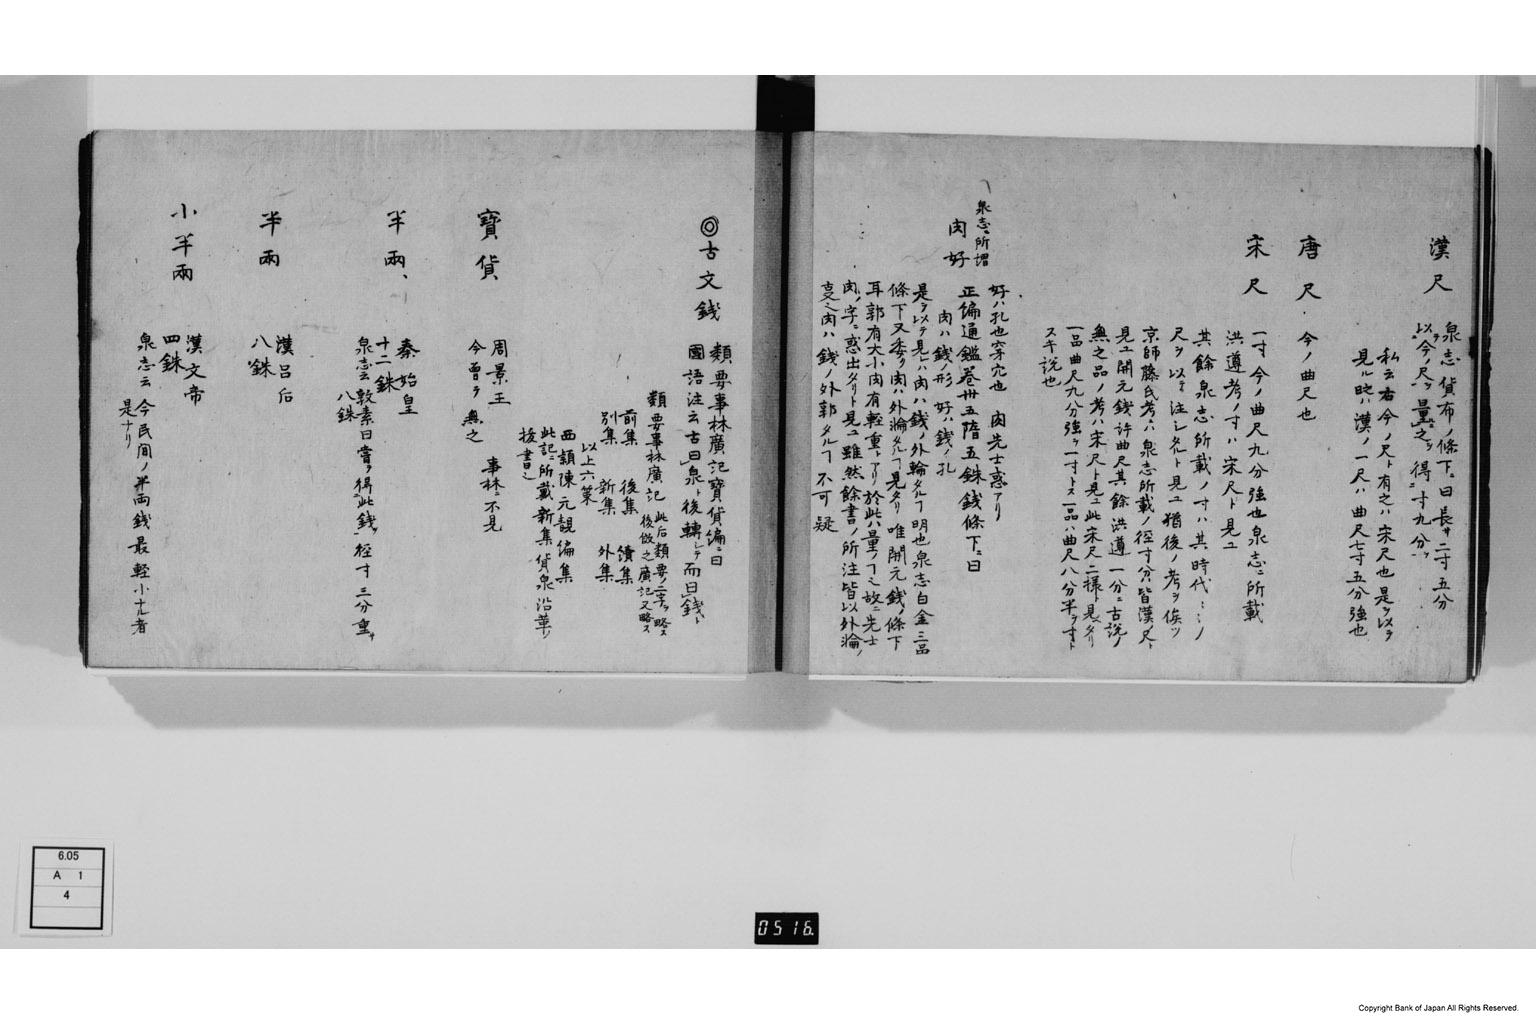 漢尺
泉志貨布ノ條下ニ曰長サ二寸五分
以今ノ尺ヲ量之得二寸九分
私云右今ノ尺ト有之ハ宋尺也是ヲ以テ
見ル時ハ漢ノ一尺ハ曲尺七寸五分強也
唐尺
今ノ曲尺也
宋尺
一寸今ノ曲尺九分強也泉志ニ所載
洪遵考ノ寸ハ宋尺ト見ユ
其餘泉志所載ノ寸ハ其時代ミミノ
尺ヲ以テ注シタルト見ユ猶後ノ考ヲ俟ツ
京師藤氏考ハ泉志所載ノ徑寸分ハ皆漢尺ト
見ユ開元錢許曲尺其餘洪遵一分ニ古説ノ
無之品ノ考ハ宋尺ト見ユ此宋尺二様ト見ヘタリ
一品曲尺九分強ヲ一寸トス一品ハ曲尺八分半ヲ寸ト
スヘキ説也
泉志ニ所謂
肉好
好ハ孔也穿穴也 肉先士惑アリ
正編通鑑巻卅五隋五銖錢條下ニ曰
肉ハ錢ノ形 好ハ錢ノ孔
是ヲ以テ見レハ肉ハ錢ノ外輪タルヿ明也泉志白金三品
條下又委シ肉ハ外淪タルヿ見タリ唯開元錢ノ條下
耳郭有大小肉有輕重トアリ於此ハ量ノヿニ故ニ先士
肉ノ字ニ惑出タリト見ユ雖然餘書ノ所注皆以外淪ノ
ヿ之肉ハ錢ノ外郭タルヿ不可疑
◎古文錢
類要事林廣記寶貨編ニ曰
國語注云古曰泉ト後轉シテ而曰錢ト
類要事林廣記 此后類要ノ二字ヲ略ス
後倣之廣記又略ス
前集 後集 續集
別集 新集 外集
以上六策
西頴陳元靚編集
此記ニ所載新集貨泉沿革ノ
抜書也
寶貨
周景王
今曾テ無之 事林ニ不見
半兩
秦始皇
十二銖
泉志云敦素曰嘗テ得此錢徑寸三分重サ
八銖
半兩
漢呂后
八銖
小半兩
漢文帝
四銖
泉志云今民間ノ半両錢最輕小ナル者
是ナリ
6.05
A 1
4
0516.
Copyright Bank of Japan All Rights Reserved.